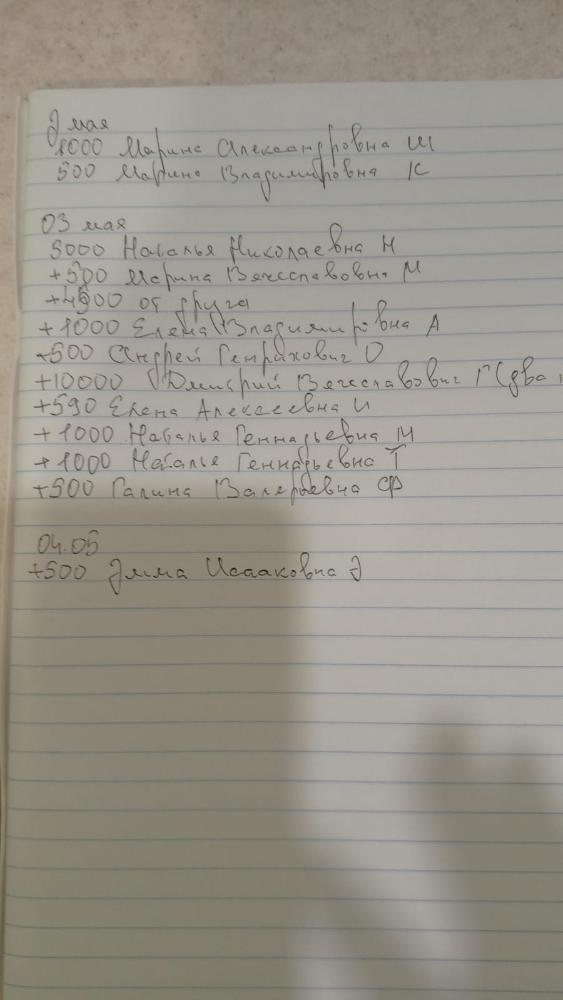 2 мая
1000 Марина Александровна Ш
500 Марина Владимировна К
03 мая
3000 Наталья Николаевна Н
+500 Марина Вячеславовна М
+4500 от друга
+1000 Елена Владимировна А
+500 Андрей Генрихович О
+10000 Дмитрий Вячеславович Г (два
+590 Елена Алексеевна И
+1000 Наталья Геннадьевна М
+1000 Наталья Геннадьевна Т
+500 Галина Валерьевна Ф
04.05
+500 Эмма Исааковна Э